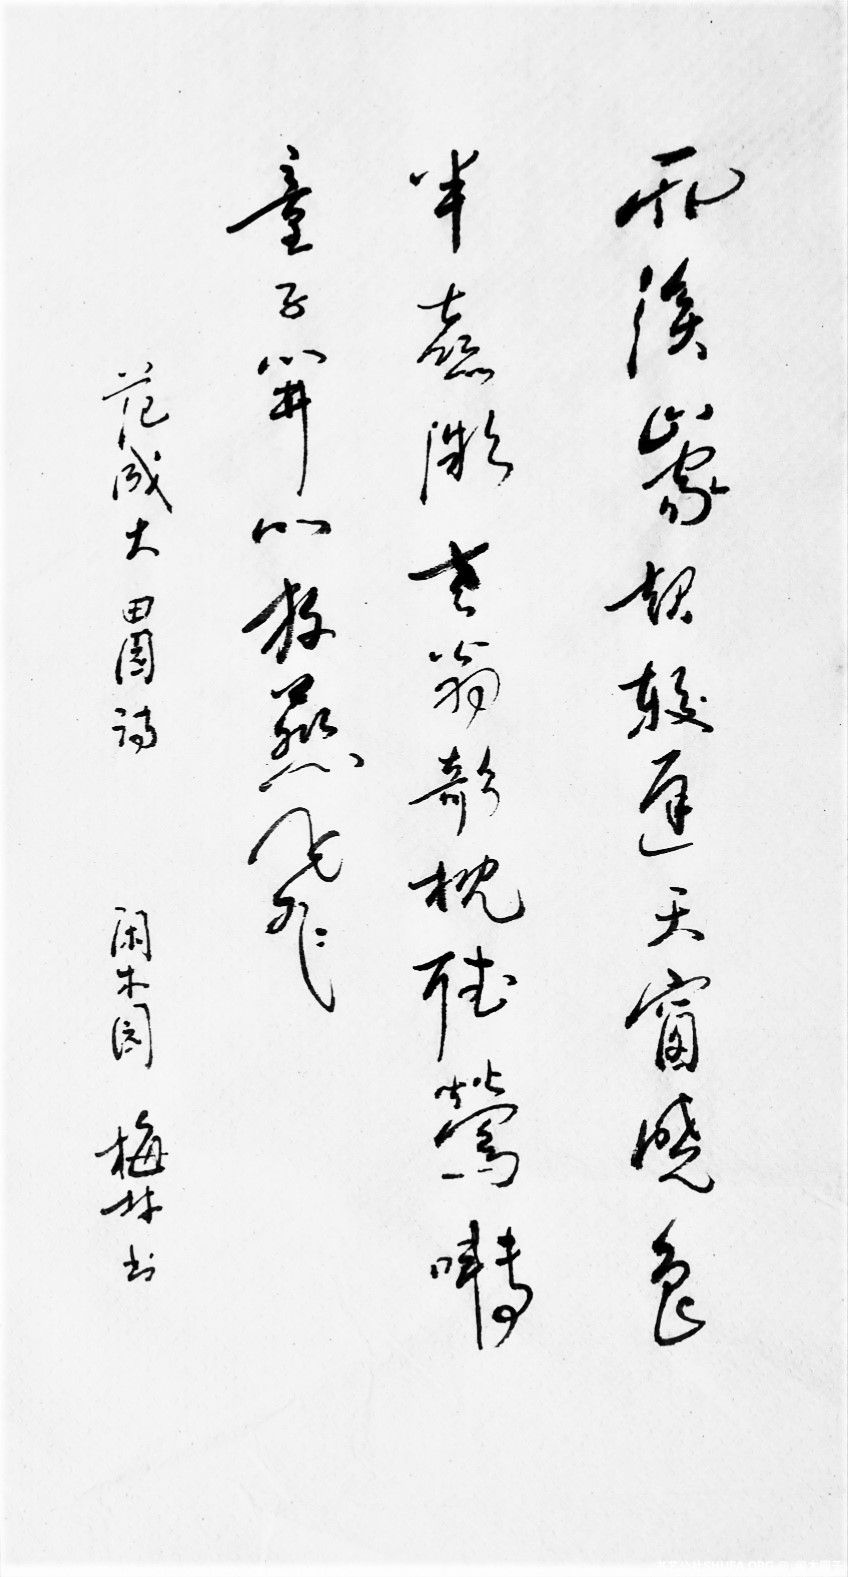 雨後山家起較遲天窗曉色
半熹微老翁欹枕聽鶯囀
童子開門放燕飛
范成大田園詩 閑木园 梅林书